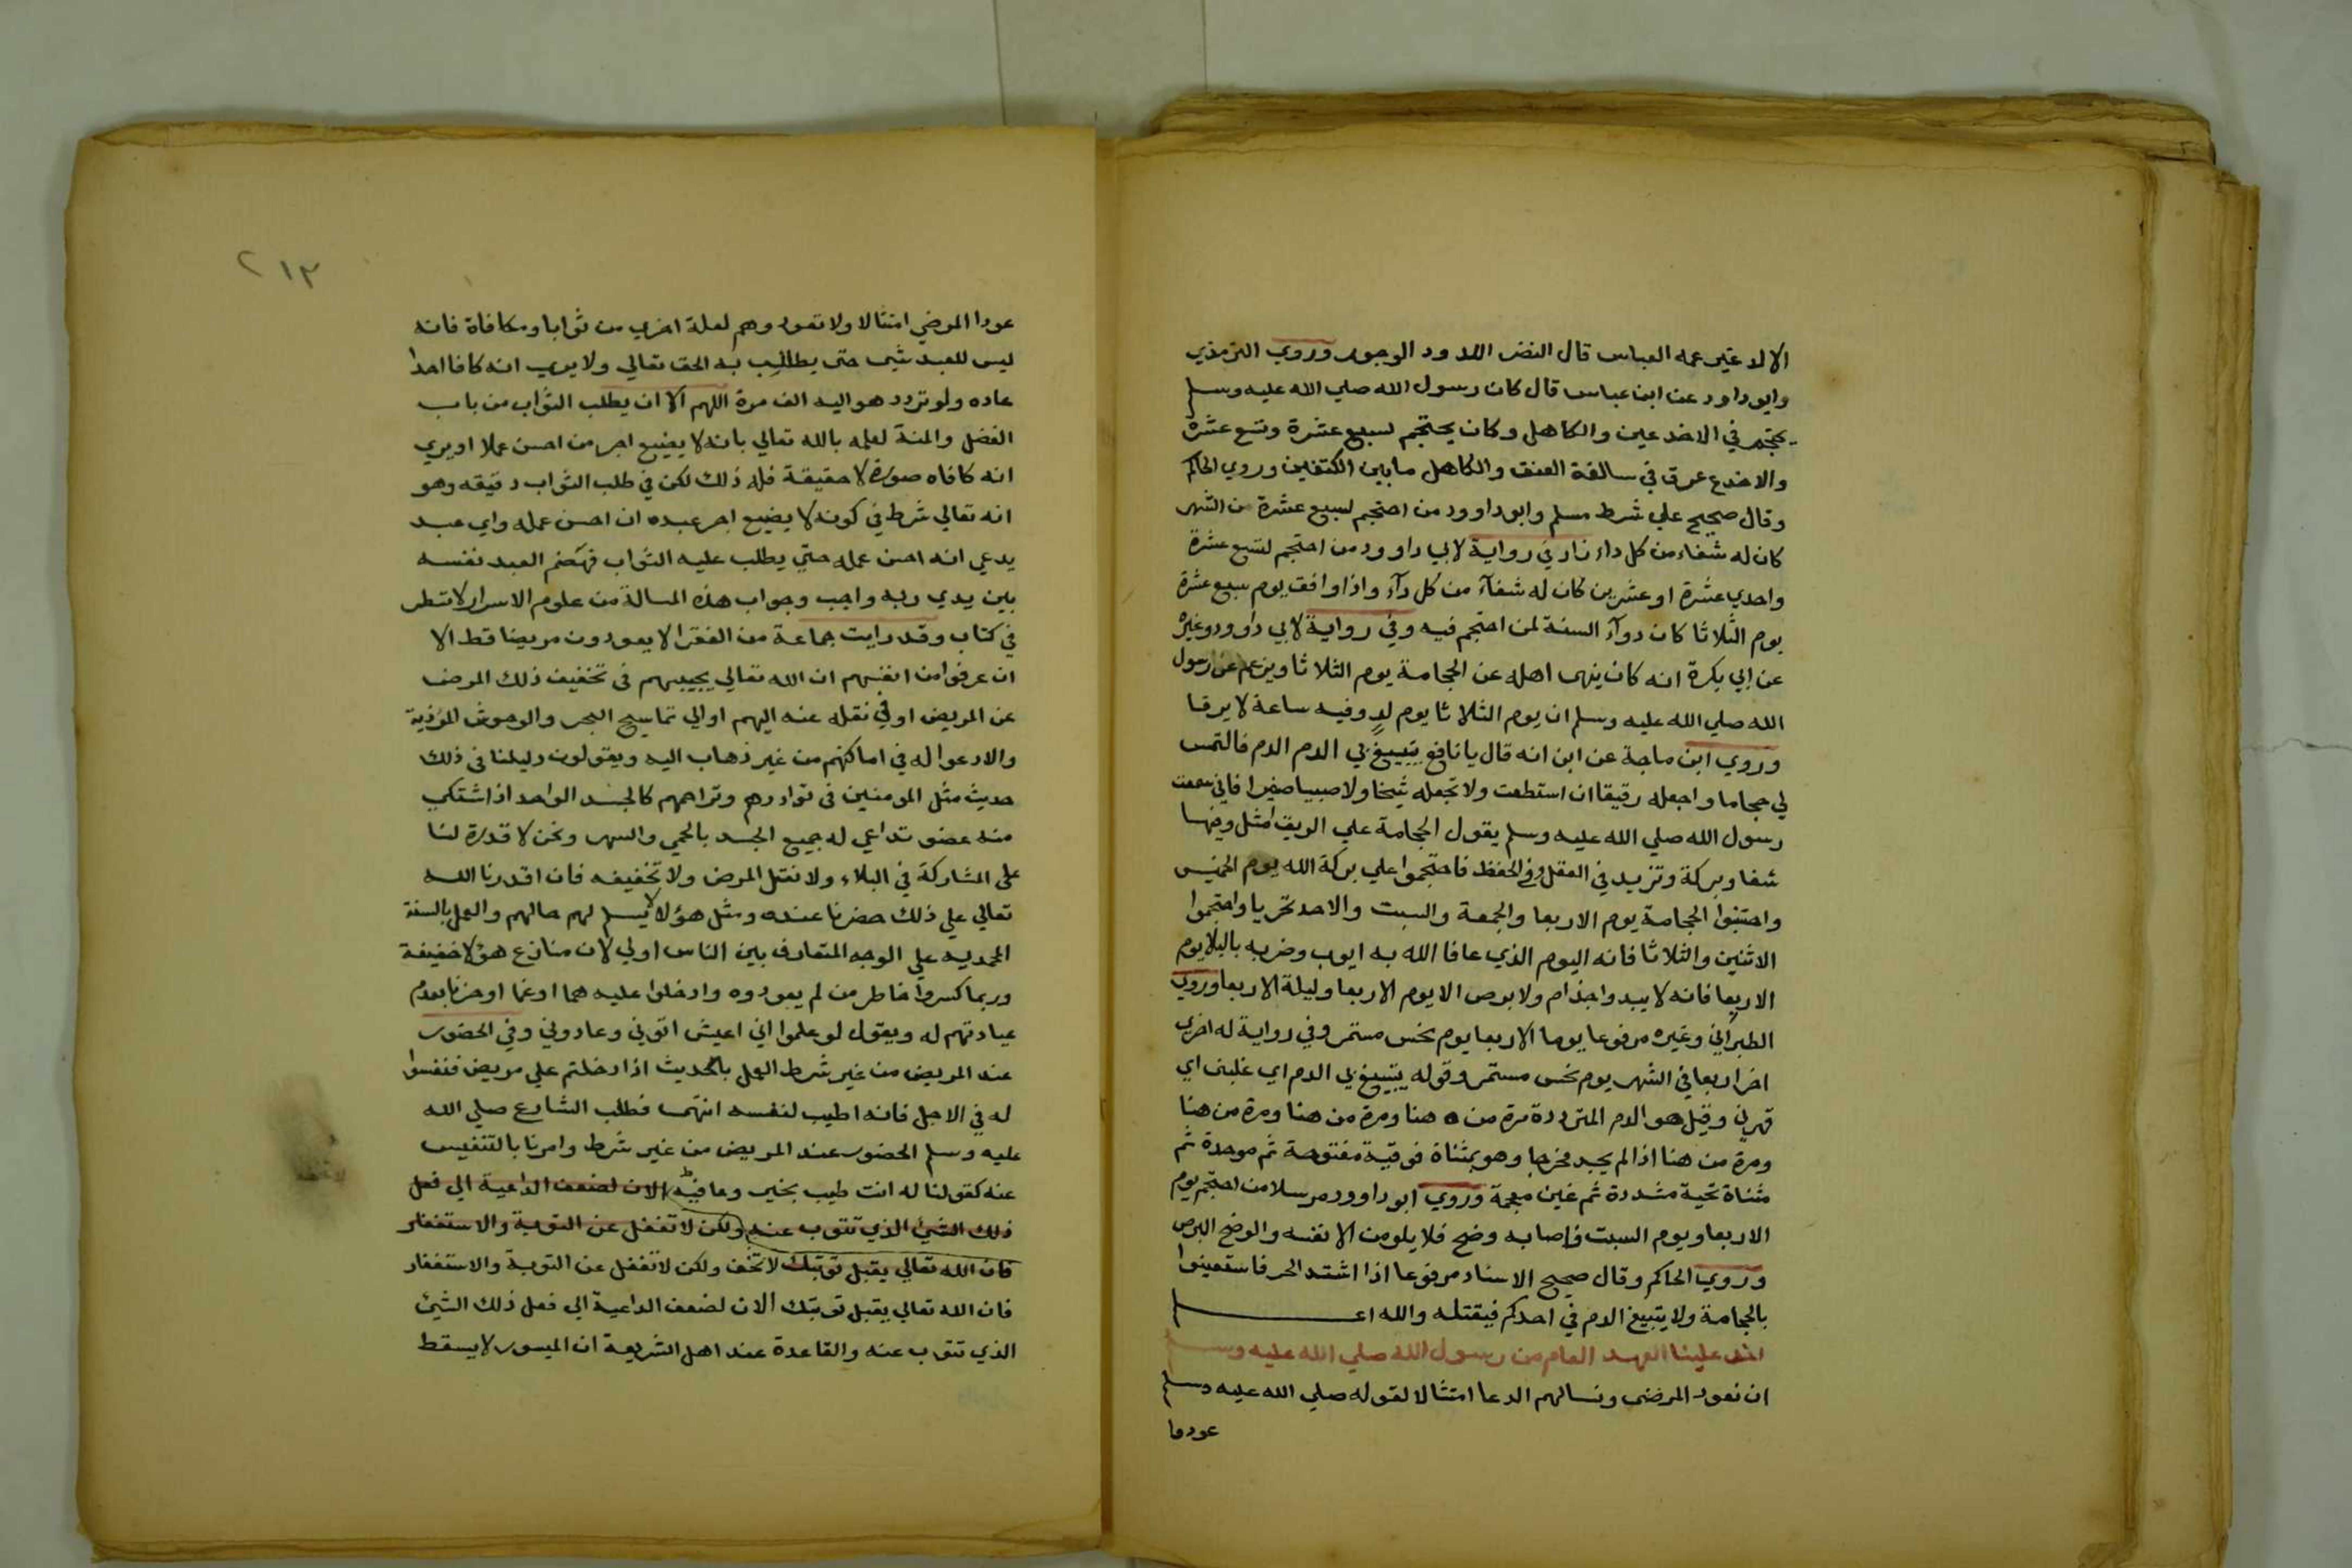 الا لد غير عمه العباس قال النضر اللدود الوجور وروي الترمذي
وابو داود عن ابن عباس قال كان رسول الله صلي الله عليه وسلم
يحتجم في الاخدعين والكاهل وكان يحتجم لسبع عشرة وتسع عشرة
والاخدع عرق في سالفة العنق والكاهل مابين الكتفين وروي الحاكم
وقال صحيح علي شرط مسلم وابو داوود من احتجم لسبع عشرة من الشهر
كان له شفاء من كل داء زاد في رواية لابي داوود من احتجم لتسع عشرة
واحدي عشرة او عشرين كان له شفآء من كل دآء واذا وافق يوم سبع عشرة
يوم الثلاثا كان دوآء السنة لمن احتجم فيه وفي رواية لابي داوود وغيره
عن ابي بكرة انه كان ينهى اهله عن الحجامة يوم الثلاثا ويزعم عن رسول
الله صلي الله عليه وسلم ان يوم الثلاثا يوم لدم وفيه ساعة لا يرقا
وروي ابن ماجة عن ابن انه قال يا نافع تبيغ بي الدم الدم فالتمس
لي حجاما واجعله رقيقا ان استطعت ولا تجعله شيخا ولا صبيا صغيرا فاني سمعت
رسول الله صلي الله عليه وسلم يقول الحجامة علي الريق امثل وفيها
شفا وبركة وتزيد في العقل وفي الحفظ فاحتجموا علي بركة الله يوم الخميس
واجتنبوا الحجامة يوم الاربعا والجمعة والسبت والاحد تحريا واحتجموا
الاثنين والثلاثا فانه اليوم الذي عافا الله به ايوب وضربه بالبلا يوم
الاربعا فانه لا يبدوا جذام ولا برص الا يوم الاربعا وليلة الاربعا وروي
الطبراني وغيره مرفوعا يوما الاربعا يوم نحس مستمر وفي رواية له اخرى
اخر اربعا في الشهر يوم نحس مستمر وقوله يتبيغ بي الدم اي غلبنى اي
قهرني وقيل هو الدم المترددة مرة من ه هنا ومرة من هنا ومرة من هنا
ومرة من هنا اذا لم يجد مخرجا وهو بمثناة فوقية مفتوحة ثم موحدة ثم
مثناة تحية مشددة ثم غين معجمة وروي ابو داوود مرسلا من احتجم يوم
الاربعا ويوم السبت فاصابه وضح فلا يلومن الا نفسه والوضح البرص
وروي الحاكم وقال صحيح الاسناد مرفوعا اذا اشتد الحر فاستعينوا
بالحجامة ولا يتبيغ الدم في احدكم فيقتله والله اعلم
اخذ علينا العهد العام من رسول الله صلي الله عليه وسلم
ان نعود المرضى ونسالهم الدعا امتثالا لقوله صلي الله عليه وسلم
عودوا
٢١٣
عودا المرضي امتثالا ولا تعودوهم لعلة اخري من ثوابا ومكافاة فانه
ليس للعبد شي حتى يطالب به الحق تعالي ولا يري انه كافا احدا
عاده ولو تردد هو اليه الف مرة اللهم الا ان يطلب الثواب من باب
الفضل والمنة لعلمه بالله تعالي بانه لا يضيع اجر من احسن عملا او يري
انه كافاه صورة لا حقيقة فله ذلك لكن في طلب الثواب دقيقه وهو
انه تعالي شرط في كونه لا يضيع اجر عبده ان احسن عمله واي عبد
يدعي انه احسن عمله حتي يطلب عليه الثواب فهضم العبد نفسه
بين يدي ربه واجب وجواب هذه المسالة من علوم الاسرار لا تسطر
في كتاب وقد رايت جماعة من الفقرا لا يعودون مريضا قط الا
ان عرفوا من انفسهم ان الله تعالي يجيبهم في تخفيف ذلك المرض
عن المريض او في نقله عنه اليهم او الي تماسيح البحر والوحوش المؤذية
والا دعوا له في اماكنهم من غير ذهاب اليه ويقولون دليلنا في ذلك
حديث مثل المومنين في توادهم وتراحمهم كالجسد الواحد اذا اشتكي
منه عضو تداعي له جميع الجسد بالحمي والسهر ونحن لا قدرة لنا
على المشاركة في البلاء ولا نقل المرض ولا تخفيفه فان اقدرنا الله
تعالي علي ذلك حضرنا عنده ومثل هؤلا لا يسلم لهم حالهم والعمل بالسنة
المحمديه علي الوجه المتعارف بين الناس اولي لان منازع هؤلا خفيفة
وربما كسروا خاطر من لم يعودوه وادخلوا عليه هما او غما او حزنا بعدم
عيادتهم له ويقول لو علموا اني اعيش اتوني وعادوني وفي الحضور
عند المريض من غير شرط العمل بالحديث اذا دخلتم علي مريض فنفسوا
له في الاجل فانه اطيب لنفسه انتهى فطلب الشارع صلي الله
عليه وسلم الحضور عند المريض من غير شرط وامرنا بالتنفيس
عنه كقولنا له انت طيب بخير وعافية الان لضعف الداعية الي فعل
ذلك الشي الذي تتوب عنه ولكن لا تغفل عن التوبة والاستغفار
فان الله تعالي يقبل توبتك لا تخف ولكن لا تغفل عن التوبة والاستغفار
فان الله تعالي يقبل توبتك الان لضعف الداعية الي فعل ذلك الشي
الذي تتوب عنه والقاعدة عند اهل الشريعة ان الميسور لا يسقط